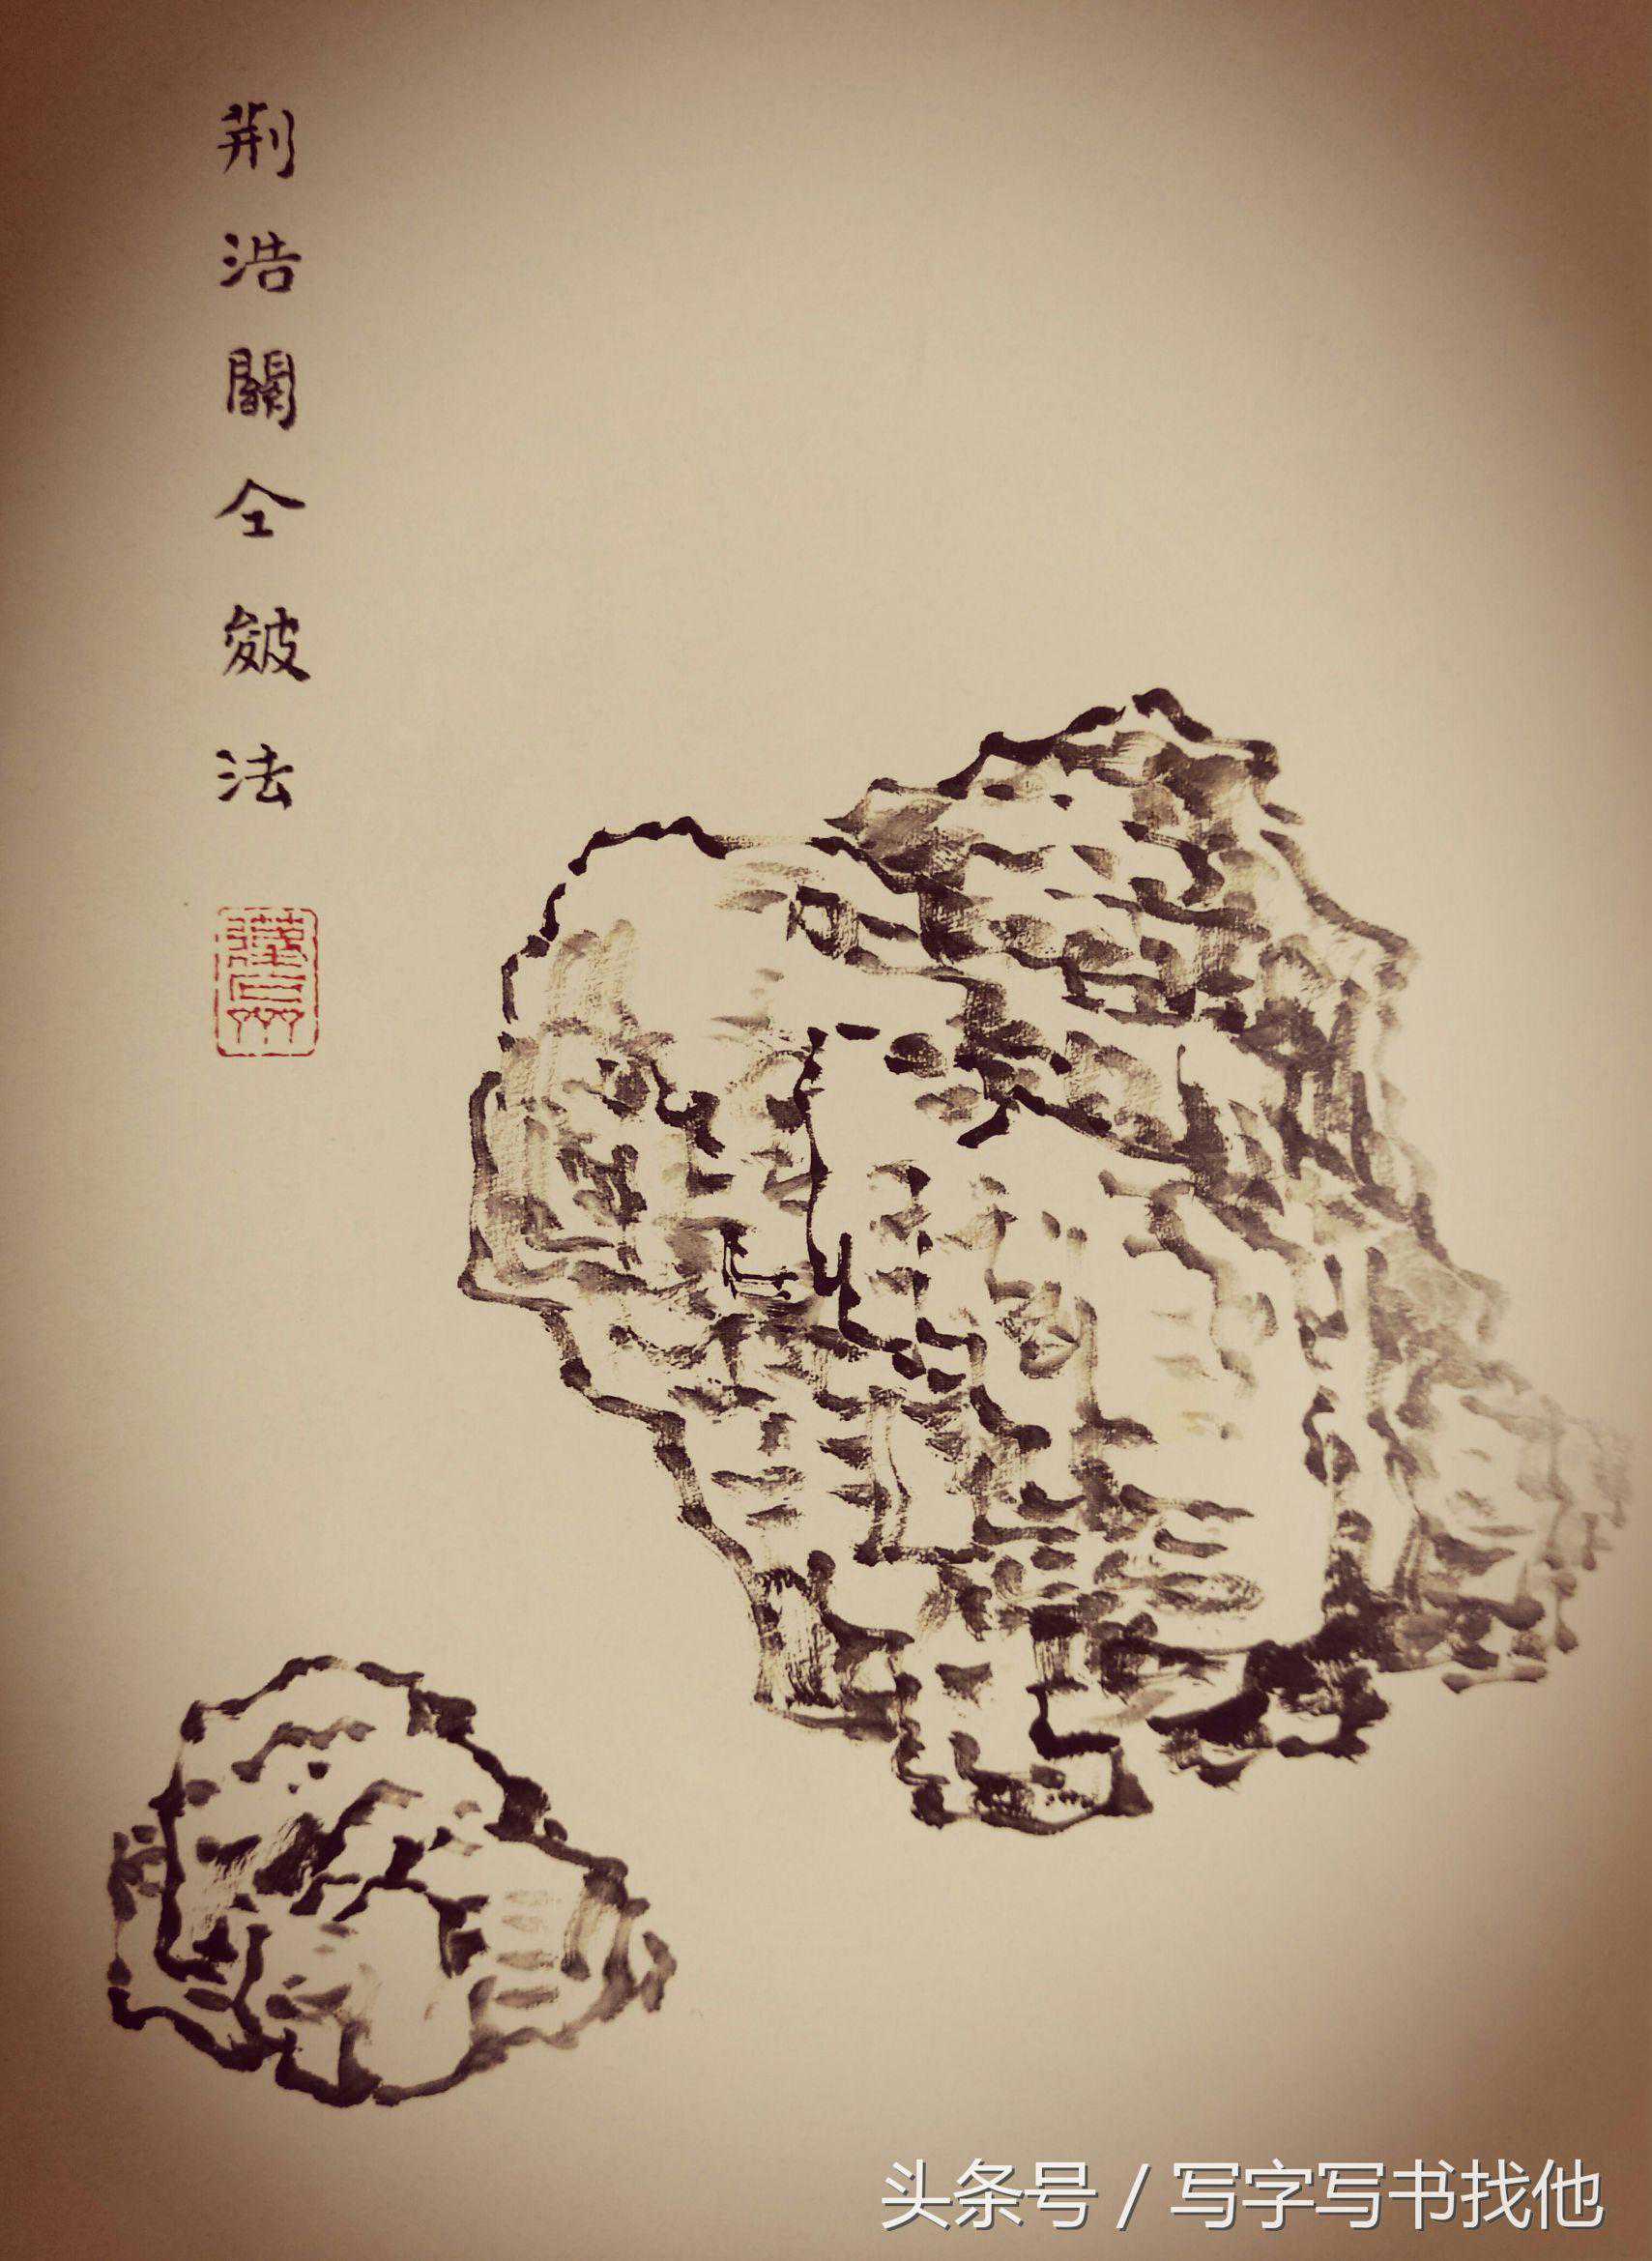 荆浩關仝皴法
头条号 / 写字写书找他